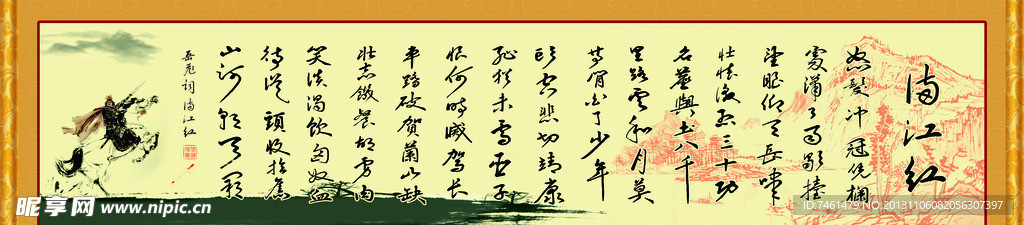 滿江红
怒髮冲冠凭欄
處瀟瀟雨歇擡
望眼仰天長嘯
壮懷激烈三十功
名塵與土八千
里路雲和月莫
等閒白了少年
頭空悲切靖康
恥猶未雪臣子
恨何時滅駕長
車踏破賀蘭山缺
壮志饑餐胡虜肉
笑談渴飲匈奴血
待從頭收拾舊
山河朝天闕
岳飛詞滿江红
昵享网 www.nipic.cn
ID:7461479 NO:20131106082056307397